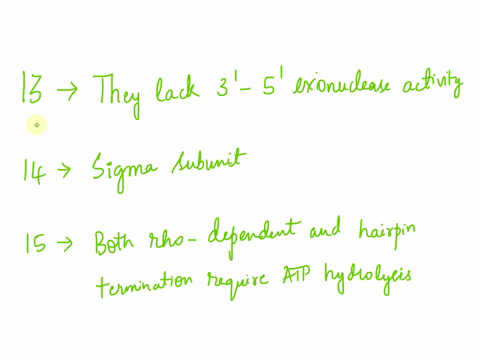 13 → They lack 3' - 5' exonuclease activity
14 → Sigma subunit
15 → Both rho-dependent and hairpin
termination require ATP hydrolysis